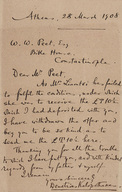 Athens, 28 March 1908
W. W. Peet, Esq
Bible House,
Constantinople
Dear Mr Peet,
As Mr. has failed
to fulfil the conditions, under which
she was to receive the LT
which I had deposited with you,
I have withdrawn the offer and
beg you to be so kind as to
send me the LT here.
Thanking you for all the trouble
to which I have put you, and with kindest
regards, to father & yourself